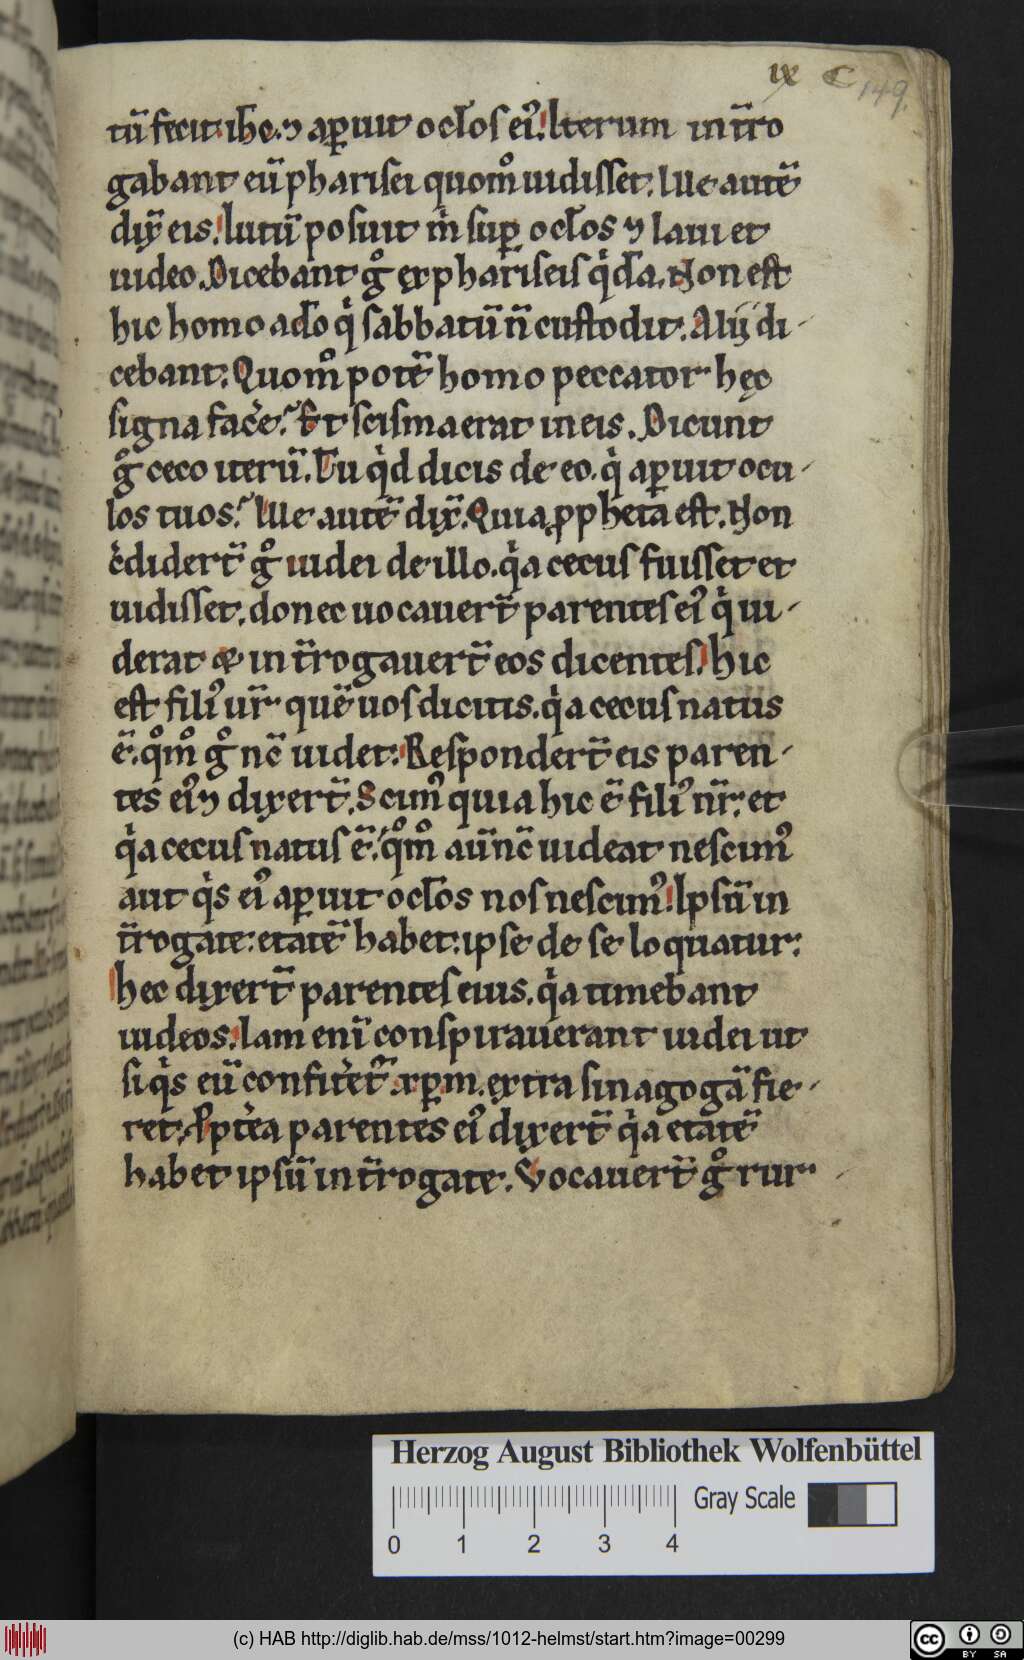 ix C 149.
tū fecit ihc. ⁊ aꝑuit ocłos ei᷒. Iterum int̄ro
gabant eū pharisei quom̊ uidisset. Ille autē
dix̄ eis. lutū posuit m̍ suꝑ ocłos ⁊ laui et
uideo. Dicebant g̊ ex phariseis q̍da. Non est
hic homo a do q̍ sabbatū n̄ custodit. Alii di-
cebant. Quom̊ potē homo peccator hęc
signa facẻ? Et scisma erat in eis. Dicunt
g̊ ceco iterū. Tu q̍d dicis de eo. q̍ aꝑuit ocu-
los tuos? Ille autē dix̄. Quia ꝓpheta est. Non
c̍didert̄ g̊ iudei de illo. q̍a cecus fuisset et
uidisset. donec uocauert̄ parentes ei᷒ q̍ ui-
derat & int̄rogauert̄ eos dicentes. hic
est fili᷒ ur̄ quē uos dicitis. q̍a cecus natus
ē. q̊m̊ g̊ nc̄ uidet. Respondert̄ eis paren-
tes ei᷒ ⁊ dixert̄. Scim᷒ quia hic ē fili᷒ nr̄. et
q̍a cecus natus ē. q̊m̊ au̅ nc̄ uideat nescim᷒
aut q̍s ei᷒ aꝑuit ocłos nos nescim᷒. Ipsū in
t̄rogate. etatē habet. ipse de se loquatur.
hec dixert̄ parentes eius. q̍a timebant
iudeos. Iam eni̅ conspirauerant iudei ut
si q̍s eū confitet̄ xpm. extra sinagogā fie-
ret. ꝓpt̍ea parentes ei᷒ dixert̄ q̍a etatē
habet ipsū int̄rogate. Vocauert̄ g̊ rur-
Herzog August Bibliothek Wolfenbüttel
Gray Scale
0 1 2 3 4
(c) HAB http://diglib.hab.de/mss/1012-helmst/start.htm?image=00299
cc BY SA